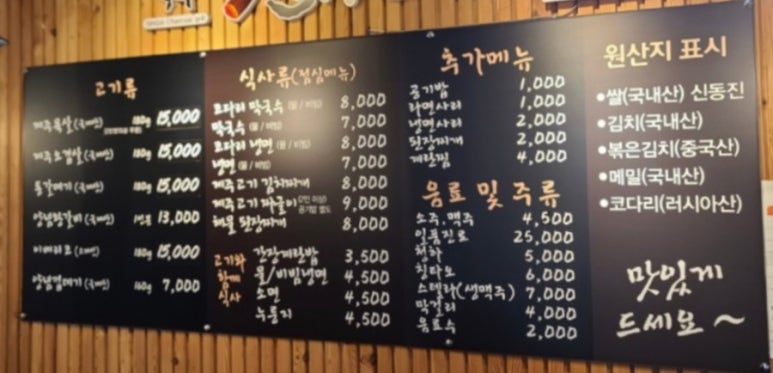 고기류
제주목살(국내산) 180g 15,000
제주오겹살(국내산) 180g 15,000
통갈매기(국내산) 180g 15,000
양념돼갈비(국내산) 1인분 13,000
이베리코 180g 15,000
양념껍데기(국내산) 160g 7,000
식사류(점심메뉴)
코다리 막국수 (물/비빔) 8,000
막국수 (물/비빔) 7,000
코다리 냉면 (물/비빔) 8,000
냉면 (물/비빔) 7,000
제주고기 김치찌개 8,000
제주고기 짜글이 (2인 이상) 공기밥 별도 9,000
해물 된장찌개 8,000
고기와 함께 식사
간장계란밥 3,500
물/비빔냉면 4,500
소면 4,500
누룽지 4,500
추가메뉴
공기밥 1,000
라면사리 1,000
냉면사리 2,000
된장찌개 2,000
계란찜 4,000
음료 및 주류
소주, 맥주 4,500
일품진로 25,000
청하 5,000
칭타오 6,000
스텔라(생맥주) 7,000
막걸리 4,000
음료수 2,000
원산지 표시
•쌀(국내산) 신동진
•김치(국내산)
•볶은김치(중국산)
•메밀(국내산)
•코다리(러시아산)
맛있게
드세요~